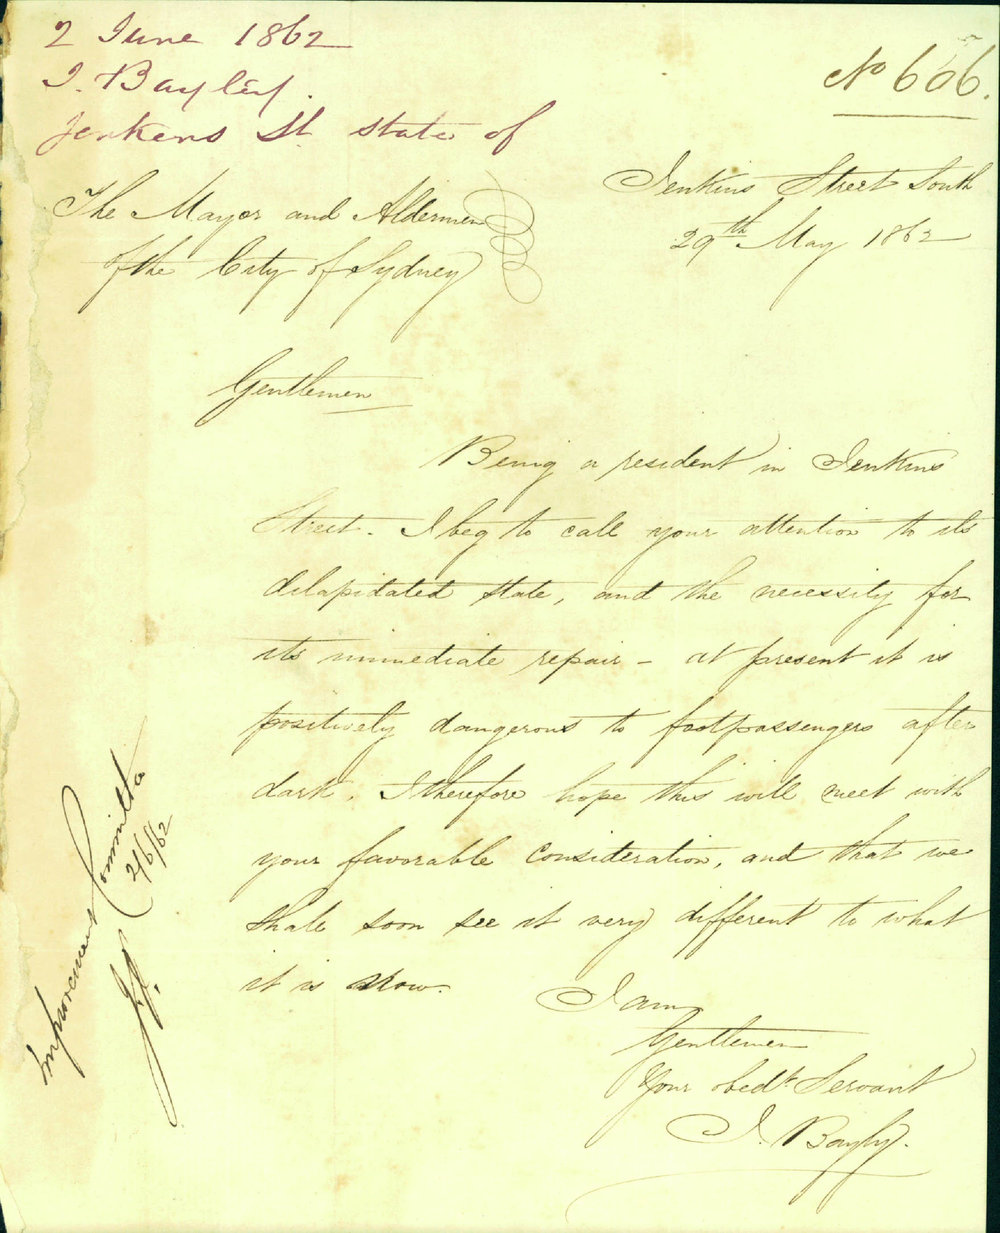 2 June 1862
J. Bayley.
Jenkens St. state of
No 606.
Jenkins Street South
29th May 1862
The Mayor and Aldermen
of the City of Sydney
Gentlemen
Being a resident in Jenkins
Street. I beg to call your attention to its
dilapidated state, and the necessity for
its immediate repair - at present it is
positively dangerous to footpassengers after
dark. I therefore hope this will meet with
your favorable consideration, and that we
shall soon see it very different to what
it is now.
I am
Gentlemen
Your obedt. Servant
J. Bayly.
Improvement Committee
2/6/62